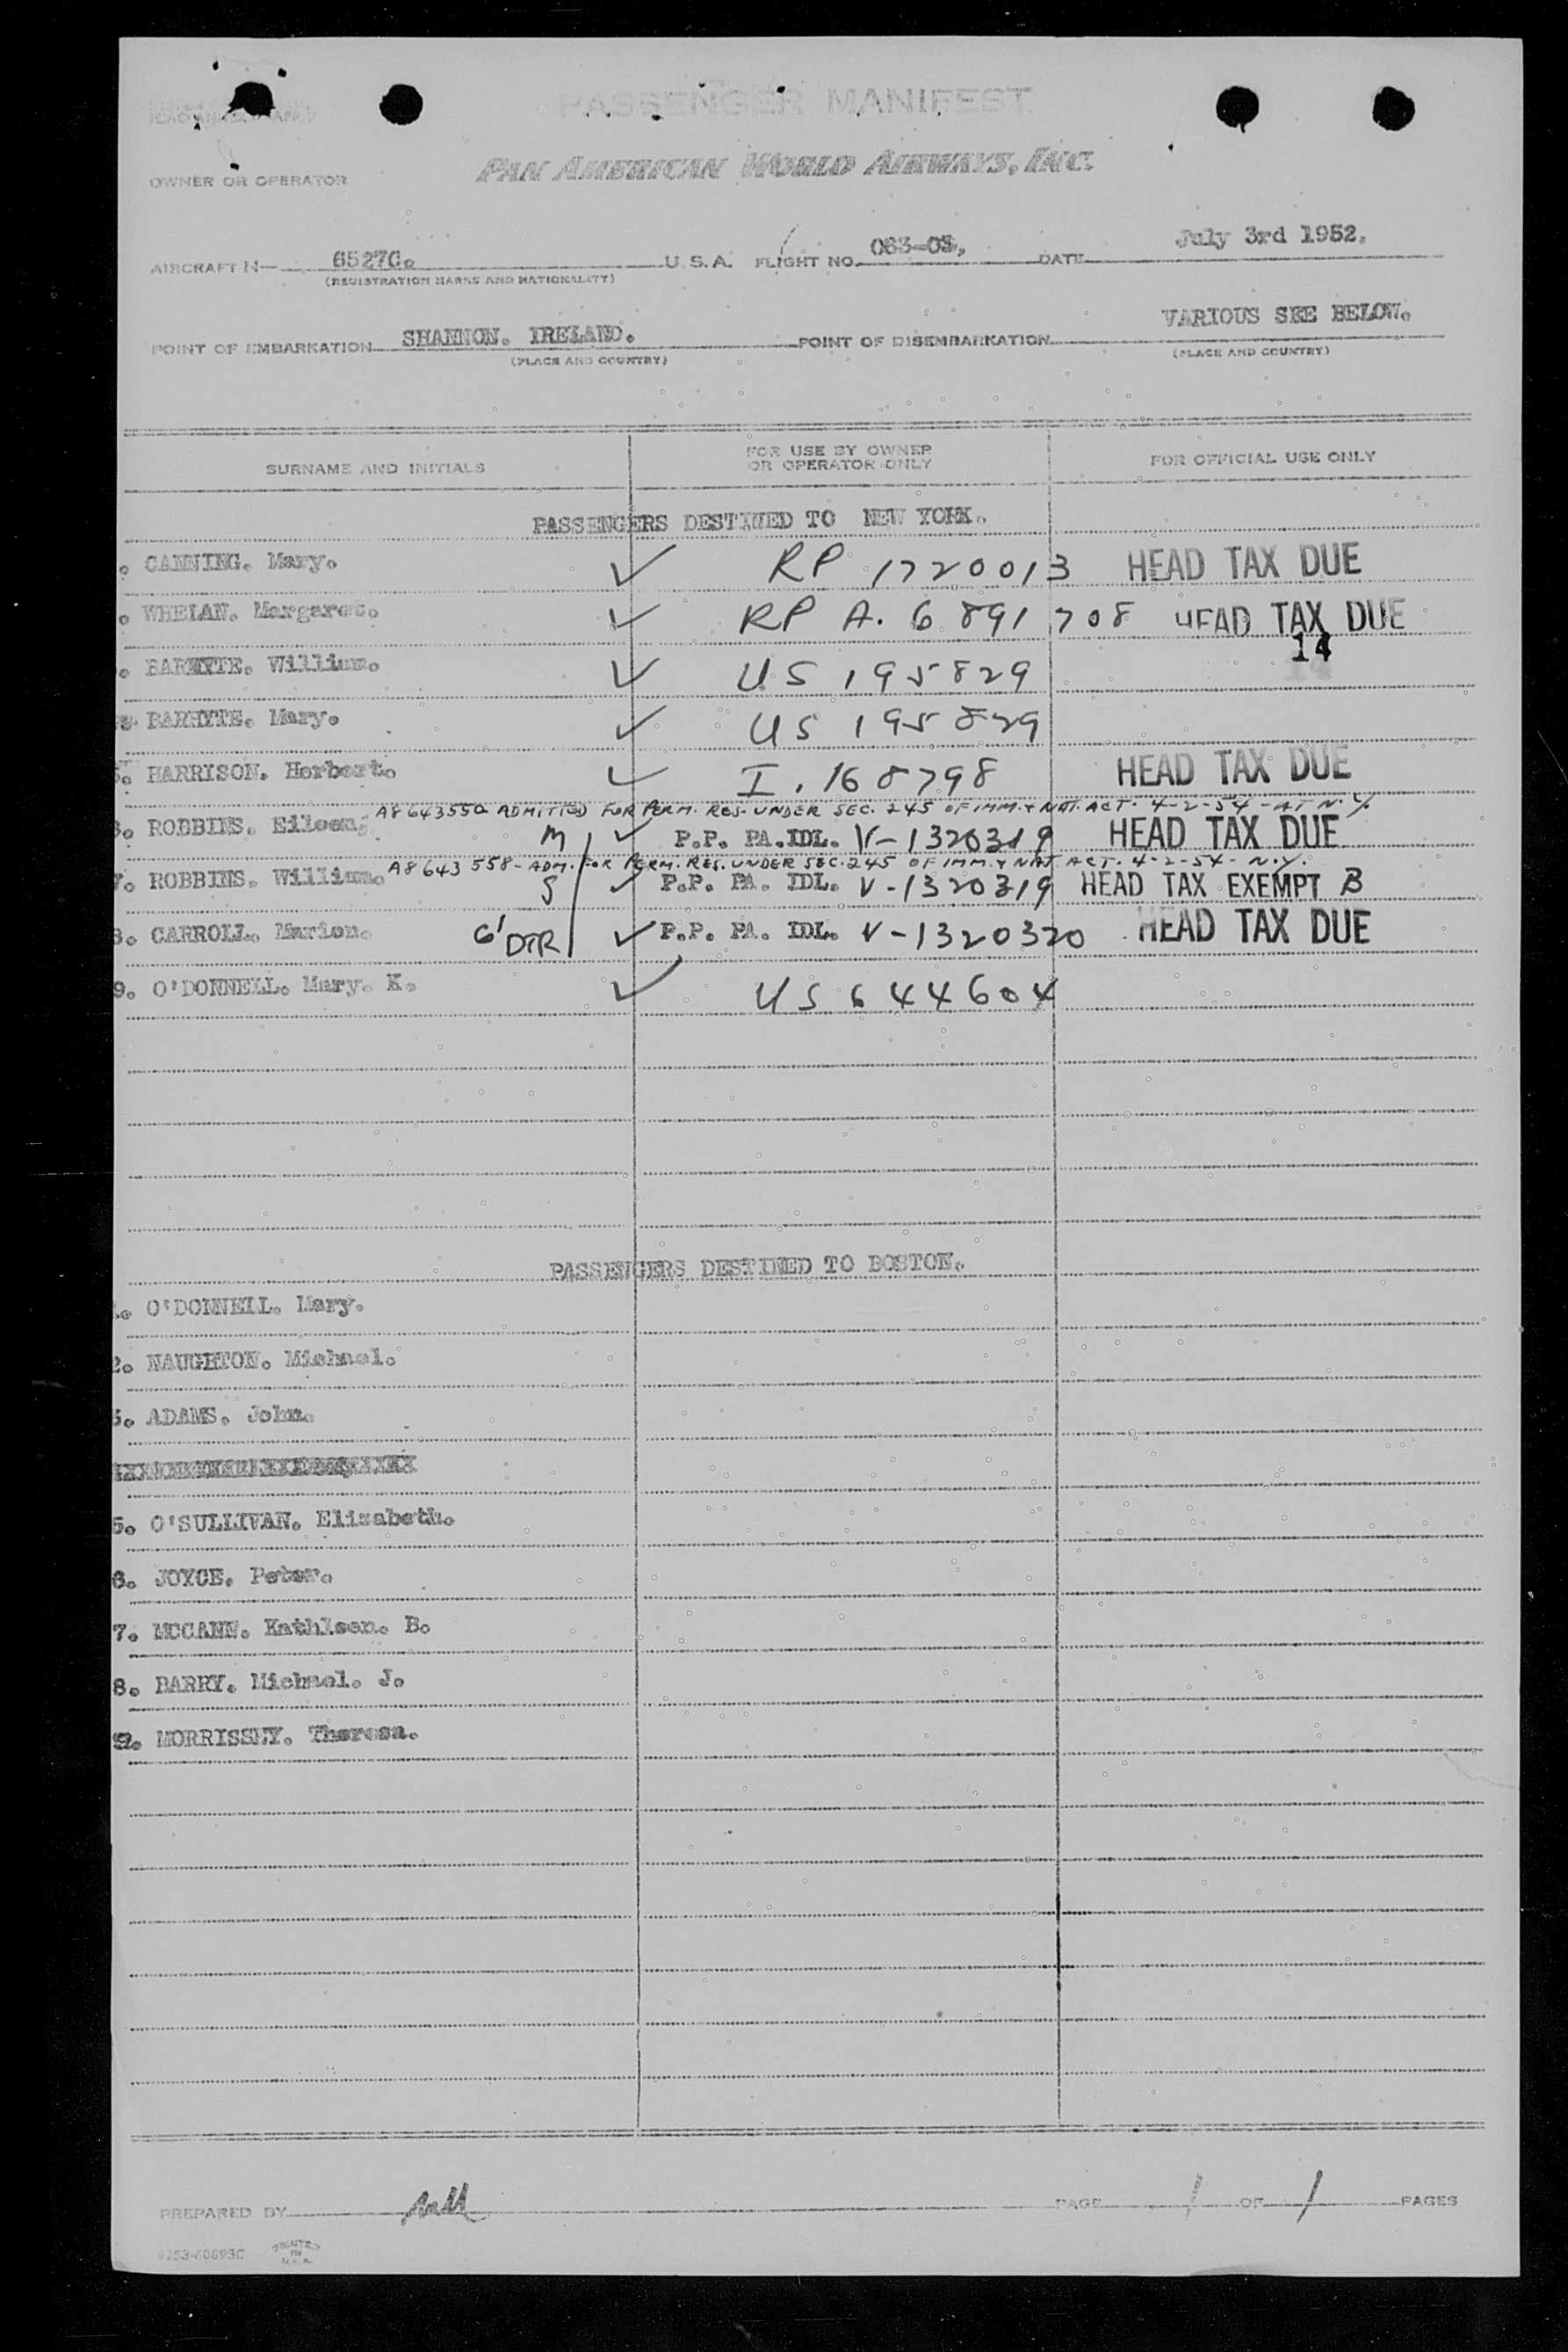 PASSENGER MANIFEST
OWNER OR OPERATOR PAN AMERICAN WORLD AIRWAYS, INC.
AIRCRAFT N— 6527C. U.S.A. FLIGHT NO. 063-03, DATE July 3rd 1952.
(REGISTRATION MARKS AND NATIONALITY)
POINT OF EMBARKATION SHANNON. IRELAND. POINT OF DISEMBARKATION VARIOUS SEE BELOW.
(PLACE AND COUNTRY) (PLACE AND COUNTRY)
SURNAME AND INITIALS FOR USE BY OWNER OR OPERATOR ONLY FOR OFFICIAL USE ONLY
PASSENGERS DESTINED TO NEW YORK.
. CANNING. Mary. ✓ RP 1720013 HEAD TAX DUE
. WHELAN. Margaret. ✓ RP A. 6 891 708 HEAD TAX DUE
14
. BARHYTE. William. ✓ US 195829
BARHYTE. Mary. ✓ US 195829
5. HARRISON. Herbert. ✓ I. 168798 HEAD TAX DUE
A8643550 ADMITTED FOR PERM. RES. UNDER SEC. 245 OF IMM. & NAT. ACT. 4-2-54 - AT N.Y.
6. ROBBINS. Eileen. M ✓ P.P. PA. IDL. V-1320319 HEAD TAX DUE
A8643558 - ADM. FOR PERM. RES. UNDER SEC. 245 OF IMM. & NAT ACT. 4-2-54 - N.Y.
7. ROBBINS. William. S ✓ P.P. PA. IDL. V-1320319 HEAD TAX EXEMPT B
8. CARROLL. Marion. G'DTR ✓ P.P. PA. IDL. V-1320320 HEAD TAX DUE
9. O'DONNELL. Mary. K. ✓ US 644604
PASSENGERS DESTINED TO BOSTON.
. O'DONNELL. Mary.
2. NAUGHTON. Michael.
3. ADAMS. John.
5. O'SULLIVAN. Elizabeth.
6. JOYCE. Peter.
7. MCCANN. Kathleen. B.
8. BARRY. Michael. J.
9. MORRISSEY. Theresa.
PREPARED BY PAGE 1 OF 1 PAGES
PRINTED IN U.S.A.